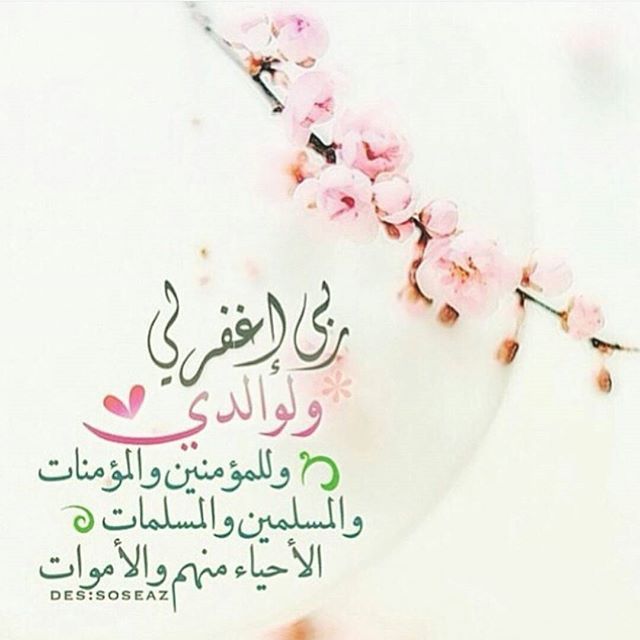 ربي إغفر لي
ولوالدي
وللمؤمنين والمؤمنات
والمسلمين والمسلمات
الأحياء منهم والأموات
DES:SOSEAZ